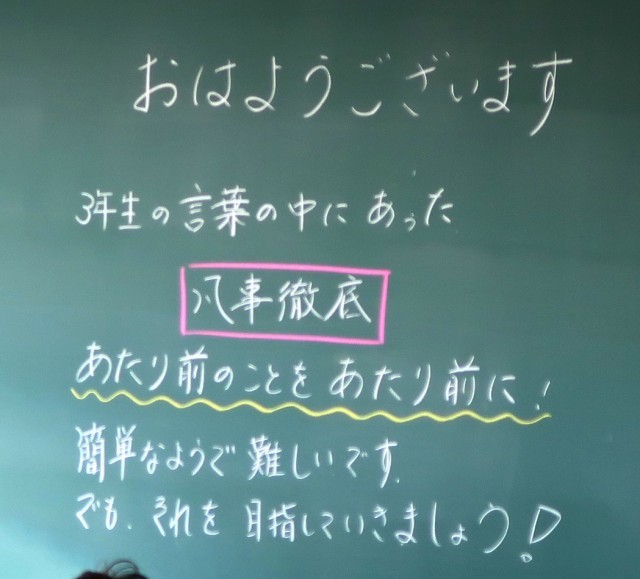 おはようございます
3年生の言葉の中にあった
凡事徹底
あたり前のことをあたり前に!
簡単なようで難しいです.
でも、それを目指していきましょう!